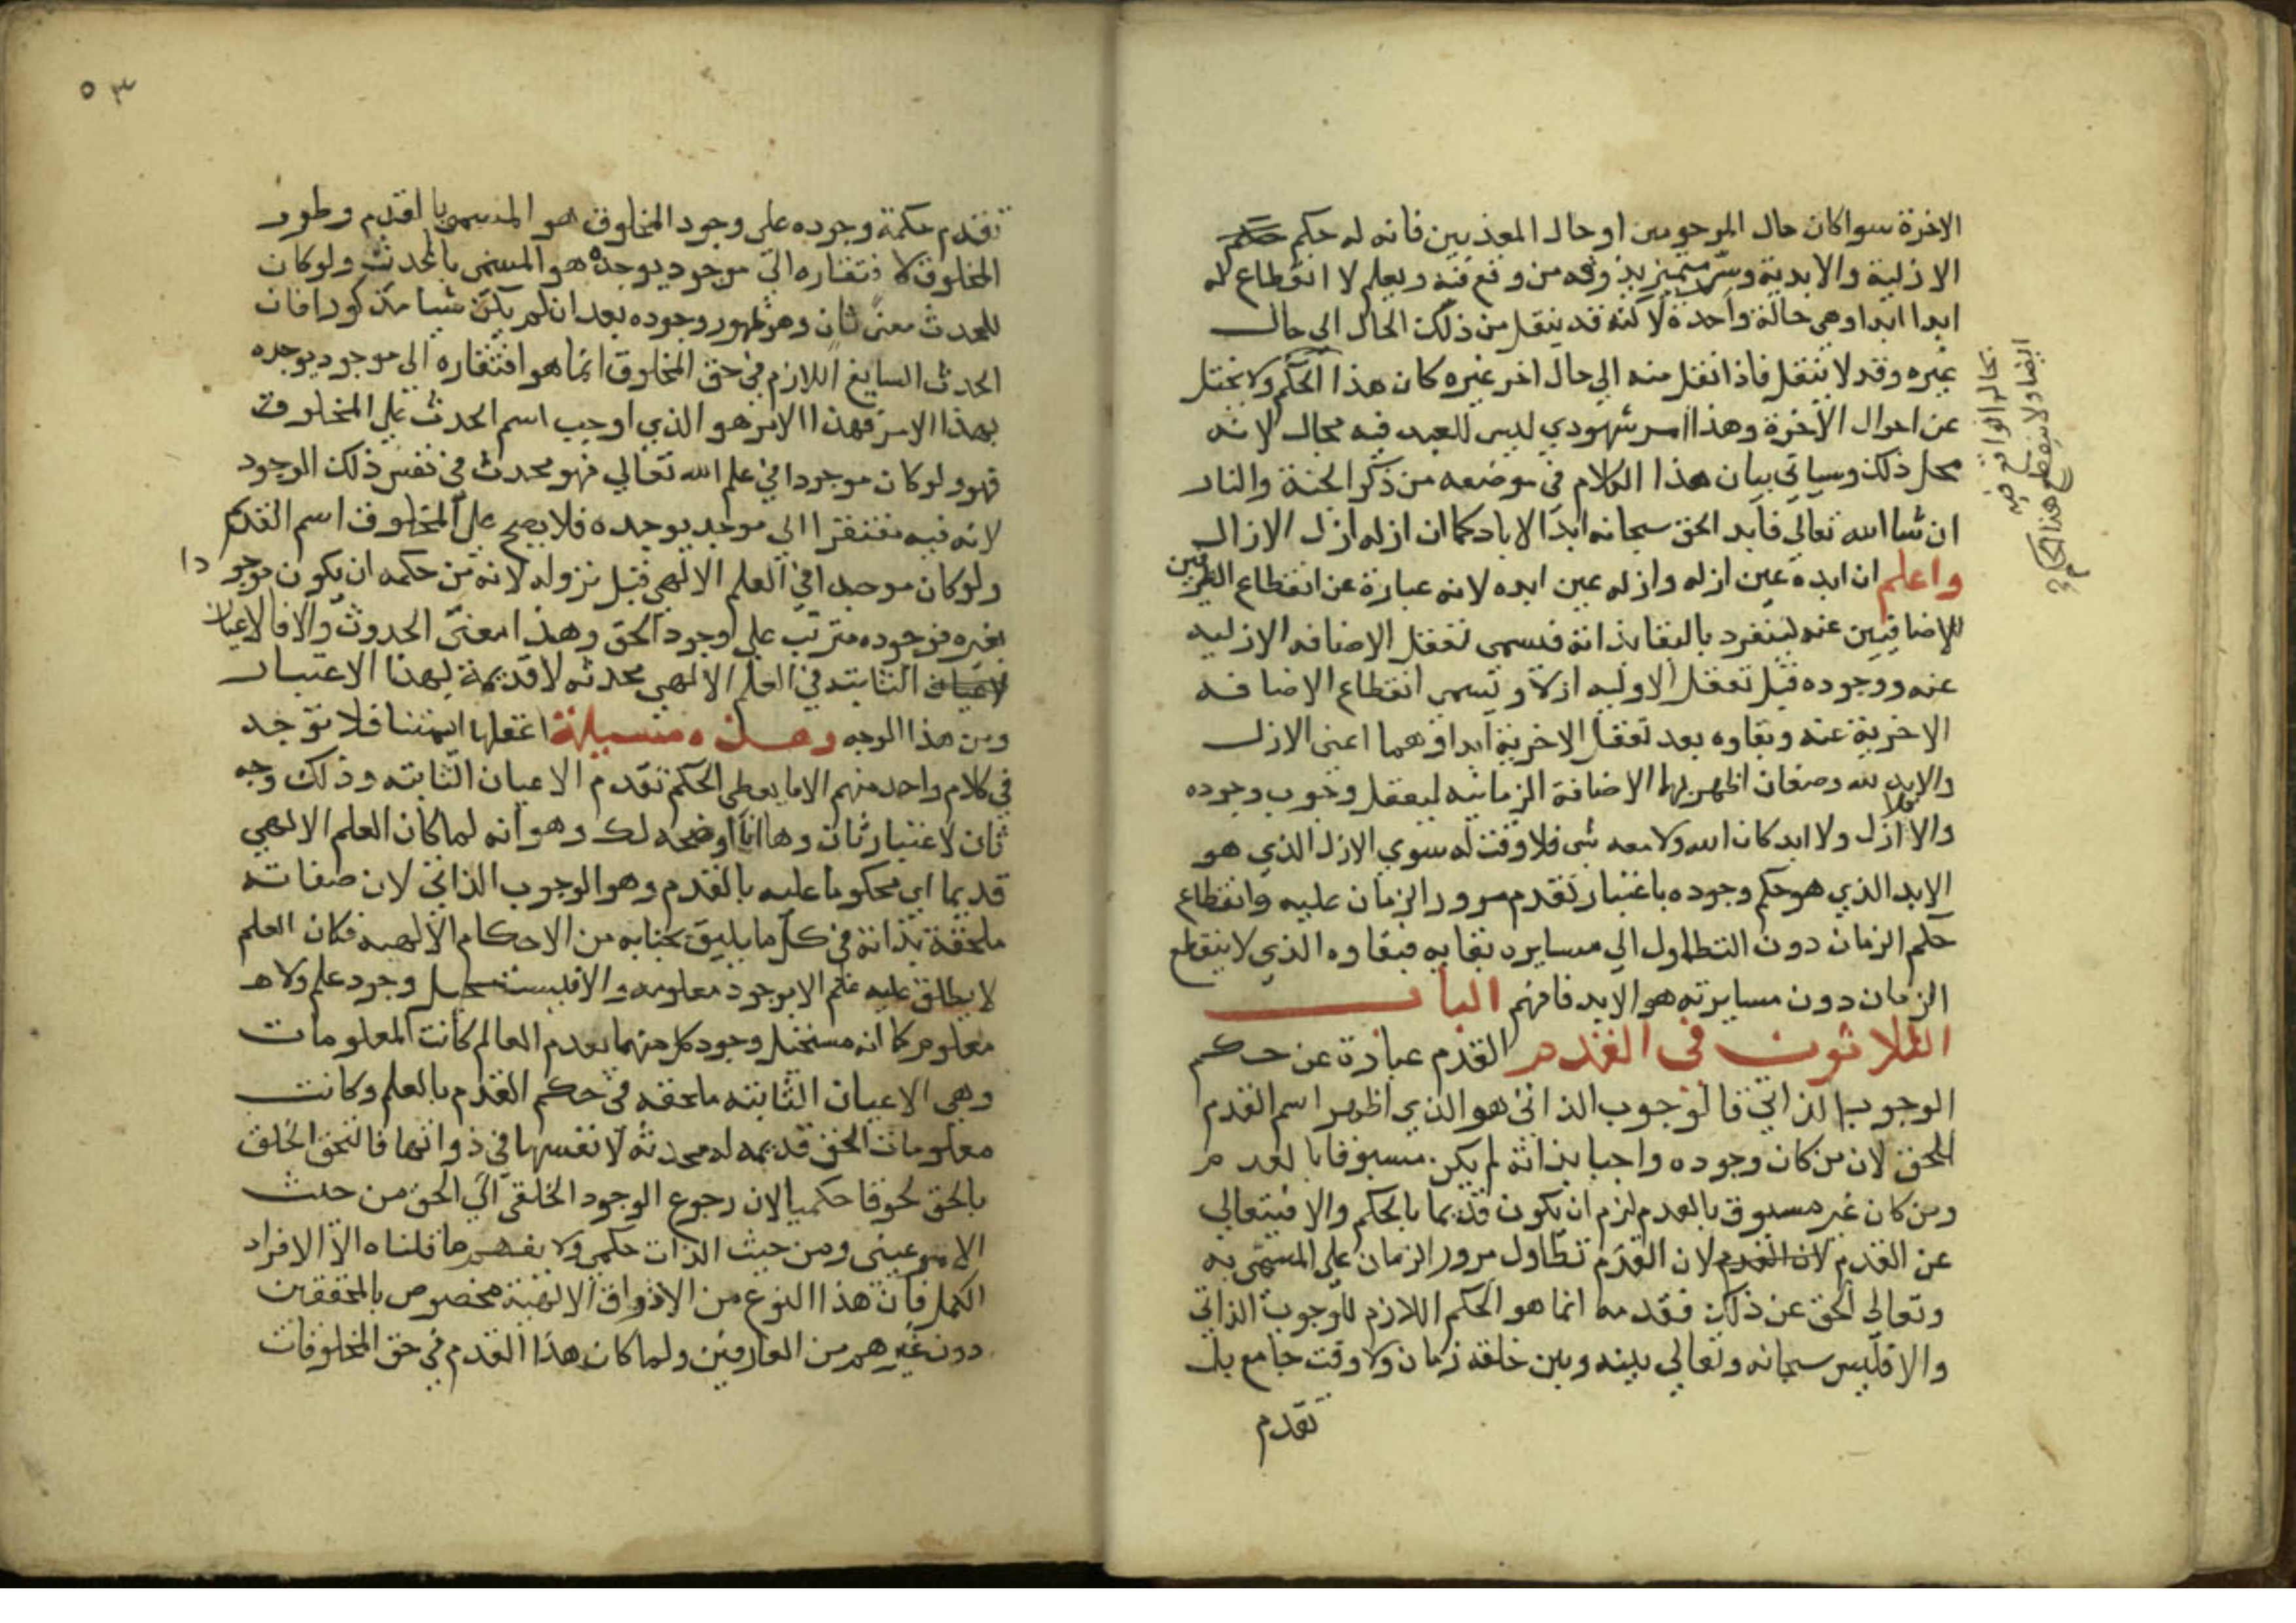 الاخرة سوا كان حال المرحومين او حال المعذبين فانه له حكم حكم
الازلية والابدية وسر متميز يذوقه من وقع فيه ويعلم لا انقطاع له
ابدا ابدا وهي حالة واحدة لاكنه قد ينتقل من ذلك الحال الي حال
غيره وقد لا ينتقل فاذا انتقل منه الي حال اخر غيره كان هذا الحكم ولا يختل
عن احوال الاخرة وهذا امر شهودي ليس للعبد فيه مجال لانه
محل ذلك وسياتي بيان هذا الكلام في موضعه من ذكر الجنة والنار
ان شا الله تعالي فابد الحق سبحانه ابد الاباد كما ان ازله ازل الازال
واعلم ان ابده عين ازله وازله عين ابده لانه عبارة عن انقطاع الطرفين
الاضافيين عنه لينفرد بالبقا بذاته فتسمي تعقل الاضافه الازليه
عنه ووجوده قبل تعقل الاوليه ازلا وتسمي انقطاع الاضافه
الاخرية عنه وبقاوه بعد تعقل الاخرية ابدا وهما اعني الازل
والابد لله وصفان اظهر بهما الاضافة الزمانيه ليعقل وجوب وجوده
والا فلا ازل ولا ابد كان الله ولا معه شي فلا وقت له سوي الازل الذي هو
الابد الذي هو حكم وجوده باعتبار تقدم مرور الزمان عليه وانقطاع
حكم الزمان دون التطاول الي مسايرة بقايه فبقاوه الذي لا ينقطع
الزمان دون مسايرته هو الابد فافهم الباب
الثلاثون في القدم القدم عبارة عن حكم
الوجوب الذاتي فالوجوب الذاتي هو الذي اظهر اسم القدم
للحق لان من كان وجوده واجبا بذاته لم يكن مسبوقا بالعدم
ومن كان غير مسبوق بالعدم لزم ان يكون قديما بالحكم والا فيتعالي
عن القدم لان القدم لان القدم تطاول مرور الزمان علي المسمي به
وتعالي الحق عن ذلك فقدمه انما هو الحكم اللازم للوجوب الذاتي
والا فليس سبحانه وتعالي بينه وبين خلقه زمان ولا وقت جامع بل
تقدم
بحال الواقع فيه
ايضا ولا ينقطع هذا الحكم
٥٣
تقدم حكمة وجوده علي وجود المخلوق هو المسمي بالقدم وطور
المخلوق لافتقاره الي موجود يوجده هو المسمي بالمحدث ولو كان
للحدث معني ثان وهو ظهور وجوده بعد ان لم يكن شيا مذكورا فان
الحدث السايغ اللازم في حق المخلوق انما هو افتقاره الي موجود يوجده
بهذا الامر فهذا الامر هو الذي اوجب اسم الحدث علي المخلوق
فهو ولو كان موجودا في علم الله تعالي فهو محدث في نفس ذلك الوجود
لانه فيه مفتقرا الي موجد يوجده فلا يصح علي المخلوق اسم القدم
ولو كان موجدا في العلم الالهي قبل نزوله لانه من حكمه ان يكون موجودا
بغيره فوجوده مترتب علي وجود الحق وهذا معني الحدوث والا فالاعيان
الاعيان الثابته في العلم الالهي محدثه لا قديمة بهذا الاعتبار
ومن هذا الوجه وهذه مسيلة اغفلها ايمتنا فلا توجد
في كلام واحد منهم الا ما يعطي الحكم تقدم الاعيان الثابته وذلك وجه
ثان لاعتبار ثان وها انا اوضحه لك وهو انه لما كان العلم الالهي
قديما اي محكوما عليه بالقدم وهو الوجوب الذاتي لان صفاته
ملحقة بذاته في كل ما يليق بجنابه من الاحكام الالهيه فكان العلم
لا يطلق عليه علم الا بوجود معلومه والا فيستحيل وجود علم ولا
معلوم كما انه مستحيل وجود كل منهما بعدم العالم كانت المعلومات
وهي الاعيان الثابته ملحقه في حكم القدم بالعلم وكانت
معلومات الحق قديمه له محدثه لانفسها في ذواتها فالتحق الخلق
بالحق لحوقا حكميا لان رجوع الوجود الخلقي الي الحق من حيث
الامر عيني ومن حيث الذات حكمي ولا يفهم ما قلناه الا الافراد
الكمل فان هذا النوع من الاذواق الالهية مخصوص بالمحققين
دون غيرهم من العارفين ولما كان هذا القدم في حق المخلوقات